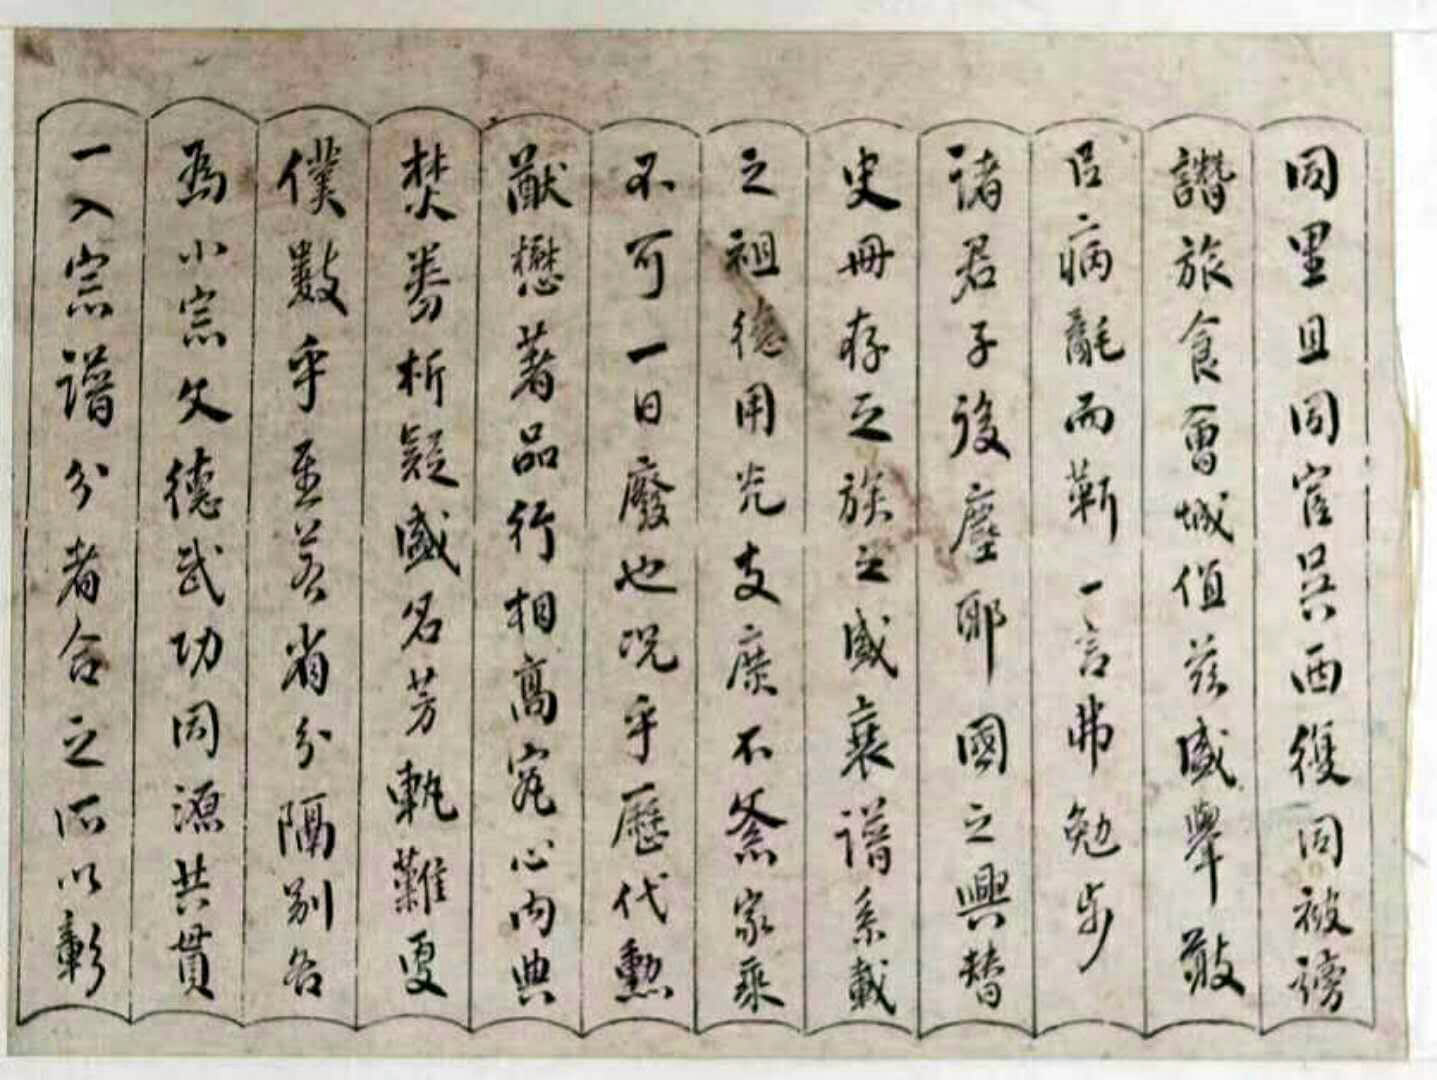 同里且同官吳西復同被謗
譖旅食會城值茲盛舉敢
以病辭而靳一言弗勉步
諸君子後塵耶國之興替
史冊存之族之盛衰譜系載
之祖德用光支庶不紊家乘
不可一日廢也況乎歷代勳
猷懋著品行相高究心內典
焚券析疑盛名芳軌難更
僕數乎至若省分隔別各
為小宗文德武功同源共貫
一入宗譜分者合之所以彰